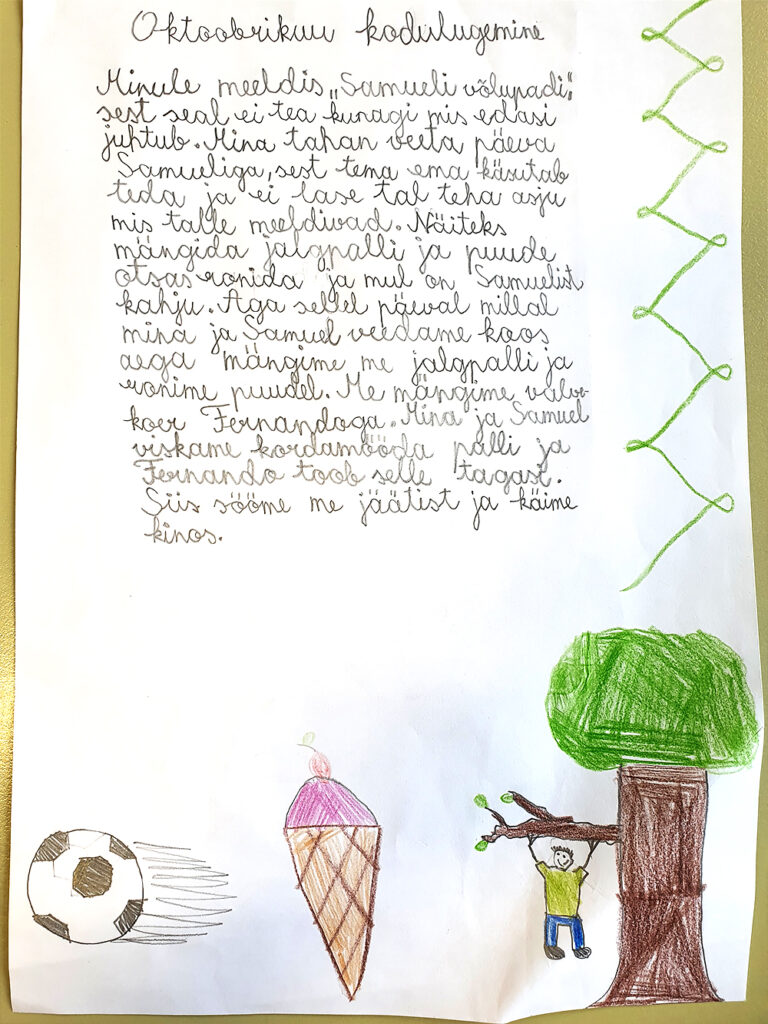 Oktoobrikuu kodulugemine
Minule meeldis „Samueli võlupadi",
sest seal ei tea kunagi mis edasi
juhtub. Mina tahan veeta päeva
Samueliga, sest tema ema käsutab
teda ja ei lase tal teha asju
mis talle meeldivad. Näiteks
mängida jalgpalli ja puude
otsas ronida ja mul on Samuelist
kahju. Aga sellel päeval millal
mina ja Samuel veedame koos
aega mängime me jalgpalli ja
ronime puudel. Me mängime valve-
koer Fernandoga. Mina ja Samuel
viskame kordamööda palli ja
Fernando toob selle tagasi.
Siis sööme me jäätist ja käime
kinos.